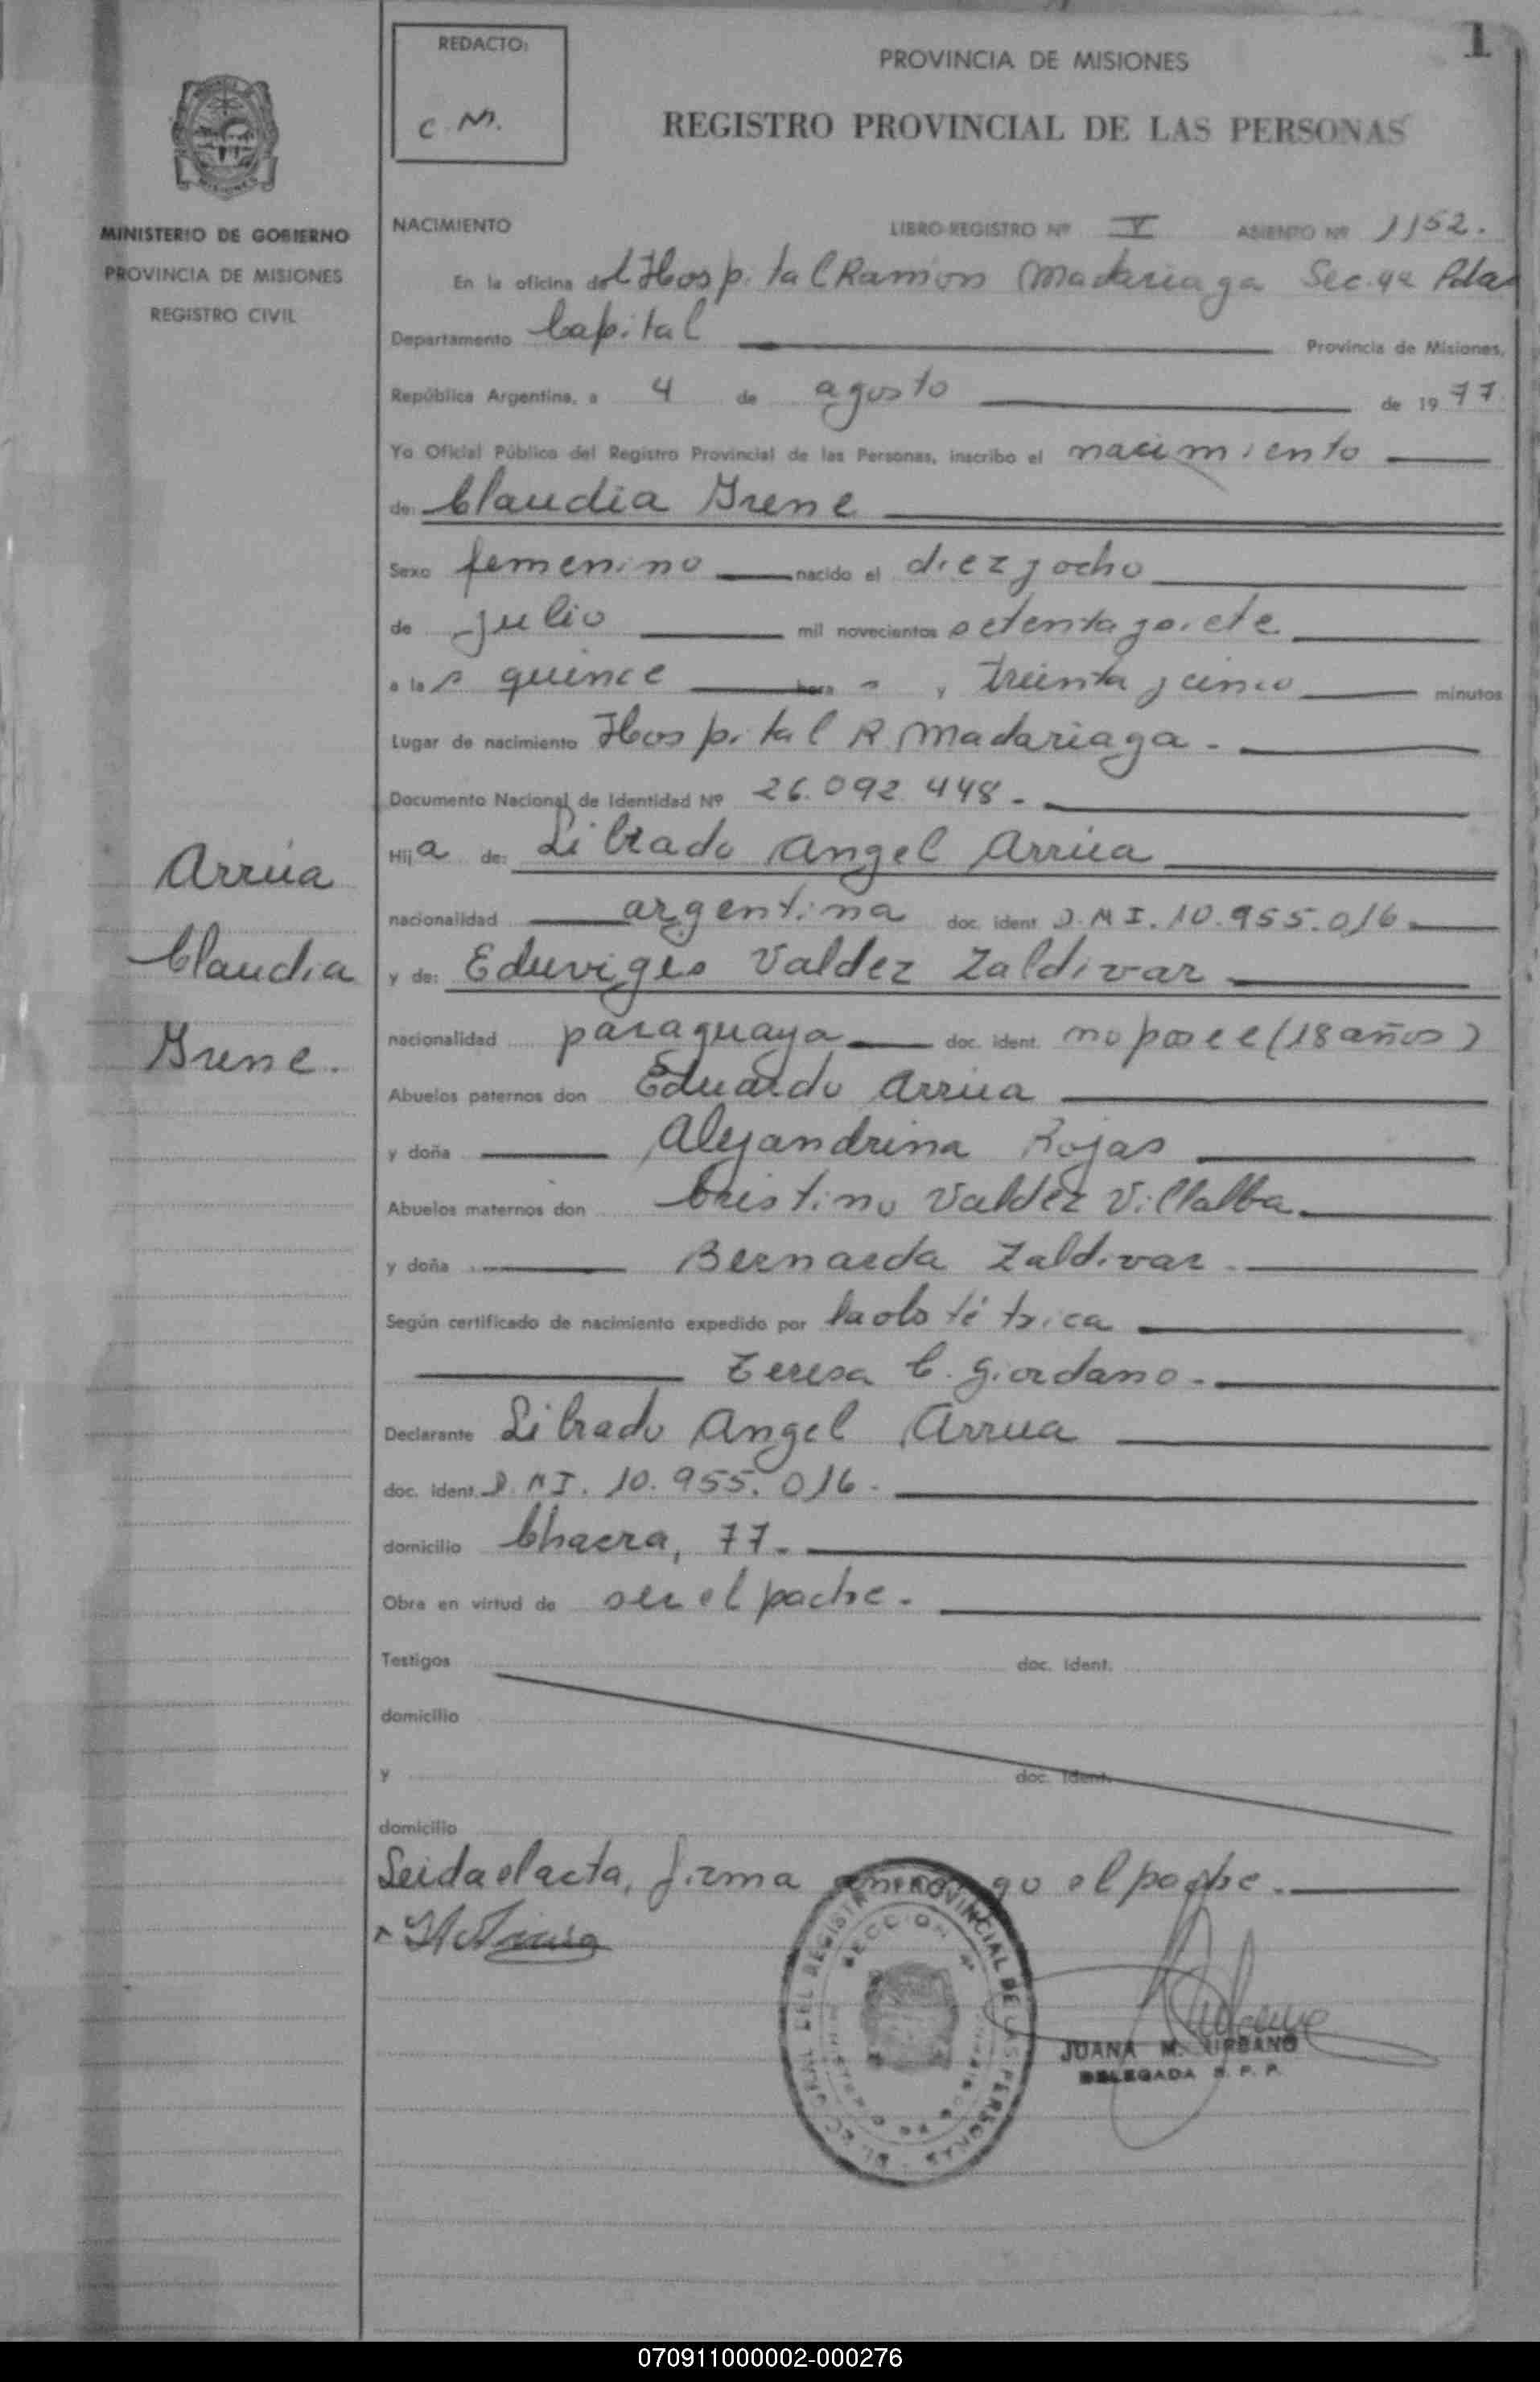 REDACTO:
C. M.
PROVINCIA DE MISIONES
1
REGISTRO PROVINCIAL DE LAS PERSONAS
MISIONES
MINISTERIO DE GOBIERNO
PROVINCIA DE MISIONES
REGISTRO CIVIL
NACIMIENTO LIBRO-REGISTRO Nº V ASIENTO Nº 1152.
En la oficina del Hospital Ramón Madariaga Sec. 4ª Pdas
Departamento Capital Provincia de Misiones,
República Argentina, a 4 de agosto de 1977.
Yo Oficial Público del Registro Provincial de las Personas, inscribo el nacimiento
de: Claudia Irene
Sexo femenino nacido el diez y ocho
de julio mil novecientos setenta y siete
a las quince hora - y treinta y cinco minutos
Lugar de nacimiento Hospital R Madariaga -
Documento Nacional de Identidad Nº 26.092.448-
Hija de: Librado Angel Arrúa
nacionalidad argentina doc. ident D.N.I. 10.955.016
y de: Eduviges Valdez Zaldivar
nacionalidad paraguaya doc. ident. no posee (18 años)
Abuelos paternos don Eduardo Arrúa
y doña Alejandrina Rojas
Abuelos maternos don Cristino Valdez Villalba
y doña Bernarda Zaldivar
Según certificado de nacimiento expedido por la obstétrica
Teresa C. Giordano -
Declarante Librado Angel Arrua
doc. ident. D.N.I. 10.955.016.
domicilio Chacra, 77.
Obra en virtud de ser el padre.
Testigos doc. ident.
domicilio
y doc. ident.
domicilio
Leida el acta, firma conmigo el padre.
Arrúa
Claudia
Irene.
REGISTRO PROVINCIAL DE LAS PERSONAS
SECCION
JUANA M. URBANO
DELEGADA R. P. P.
070911000002-000276